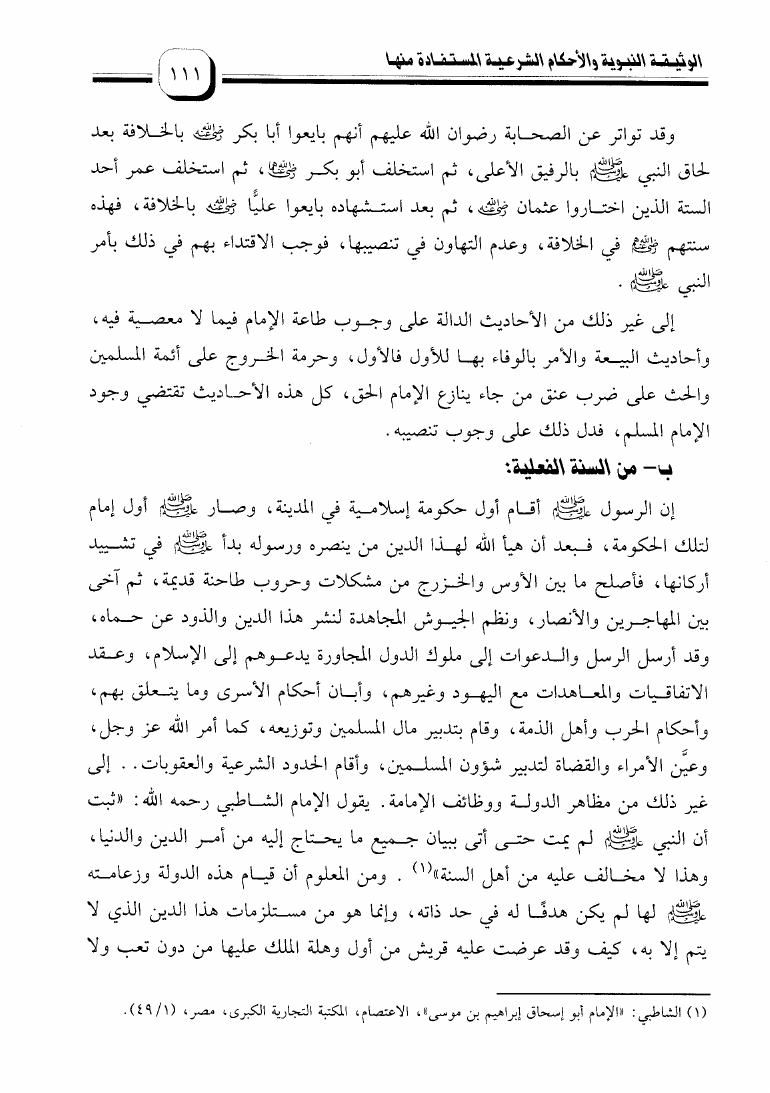 الوثيقة النبوية والأحكام الشرعية المستفادة منها
١١١
وقد تواتر عن الصحابة رضوان الله عليهم أنهم بايعوا أبا بكر رضي الله عنه بالخلافة بعد
لحاق النبي ﷺ بالرفيق الأعلى، ثم استخلف أبو بكر رضي الله عنهما، ثم استخلف عمر أحد
الستة الذين اختاروا عثمان رضي الله عنه، ثم بعد استشهاده بايعوا عليًّا رضي الله عنه بالخلافة، فهذه
سنتهم رضي الله عنهم في الخلافة، وعدم التهاون في تنصيبها، فوجب الاقتداء بهم في ذلك بأمر
النبي ﷺ.
إلى غير ذلك من الأحاديث الدالة على وجوب طاعة الإمام فيما لا معصية فيه،
وأحاديث البيعة والأمر بالوفاء بها للأول فالأول، وحرمة الخروج على أئمة المسلمين
والحث على ضرب عنق من جاء ينازع الإمام الحق، كل هذه الأحاديث تقتضي وجود
الإمام المسلم، فدل ذلك على وجوب تنصيبه.
ب- من السنة الفعلية:
إن الرسول ﷺ أقام أول حكومة إسلامية في المدينة، وصار ﷺ أول إمام
لتلك الحكومة، فبعد أن هيأ الله لهذا الدين من ينصره ورسوله بدأ ﷺ في تشييد
أركانها، فأصلح ما بين الأوس والخزرج من مشكلات وحروب طاحنة قديمة، ثم آخى
بين المهاجرين والأنصار، ونظم الجيوش المجاهدة لنشر هذا الدين والذود عن حماه،
وقد أرسل الرسل والدعوات إلى ملوك الدول المجاورة يدعوهم إلى الإسلام، وعقد
الاتفاقيات والمعاهدات مع اليهود وغيرهم، وأبان أحكام الأسرى وما يتعلق بهم،
وأحكام الحرب وأهل الذمة، وقام بتدبير مال المسلمين وتوزيعه، كما أمر الله عز وجل،
وعيَّن الأمراء والقضاة لتدبير شؤون المسلمين، وأقام الحدود الشرعية والعقوبات.. إلى
غير ذلك من مظاهر الدولة ووظائف الإمامة. يقول الإمام الشاطبي رحمه الله: «ثبت
أن النبي ﷺ لم يمت حتى أتى ببيان جميع ما يحتاج إليه من أمر الدين والدنيا،
وهذا لا مخالف عليه من أهل السنة»(١). ومن المعلوم أن قيام هذه الدولة وزعامته
ﷺ لها لم يكن هدفًا له في حد ذاته، وإنما هو من مستلزمات هذا الدين الذي لا
يتم إلا به، كيف وقد عرضت عليه قريش من أول وهلة الملك عليها من دون تعب ولا
(١) الشاطبي: «الإمام أبو إسحاق إبراهيم بن موسى»، الاعتصام، المكتبة التجارية الكبرى، مصر، (٤٩/١).